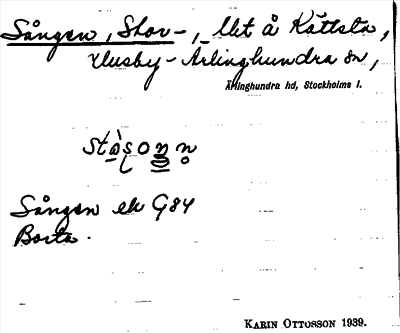 Sången, Stor-, Utt å Kättsta,
Husby-Ärlinghundra sn,
Ärlinghundra hd, Stockholms l.
Sången ek G84
Borta.
KARIN OTTOSSON 1939.